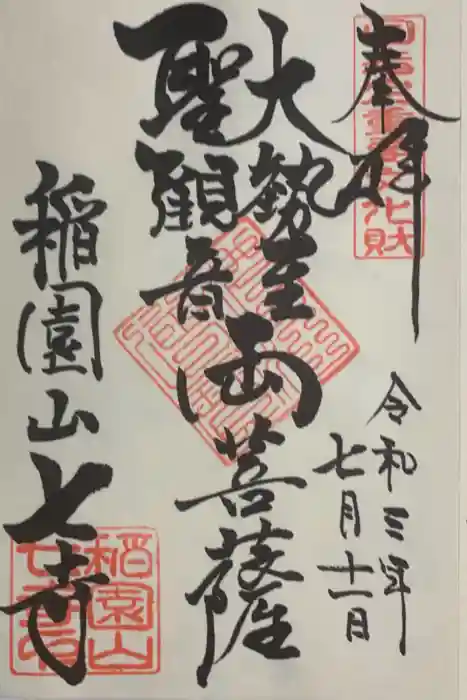 奉拝
令和三年
七月十一日
大勢至
聖観音
両菩薩
稲園山七寺
稲園山
七寺